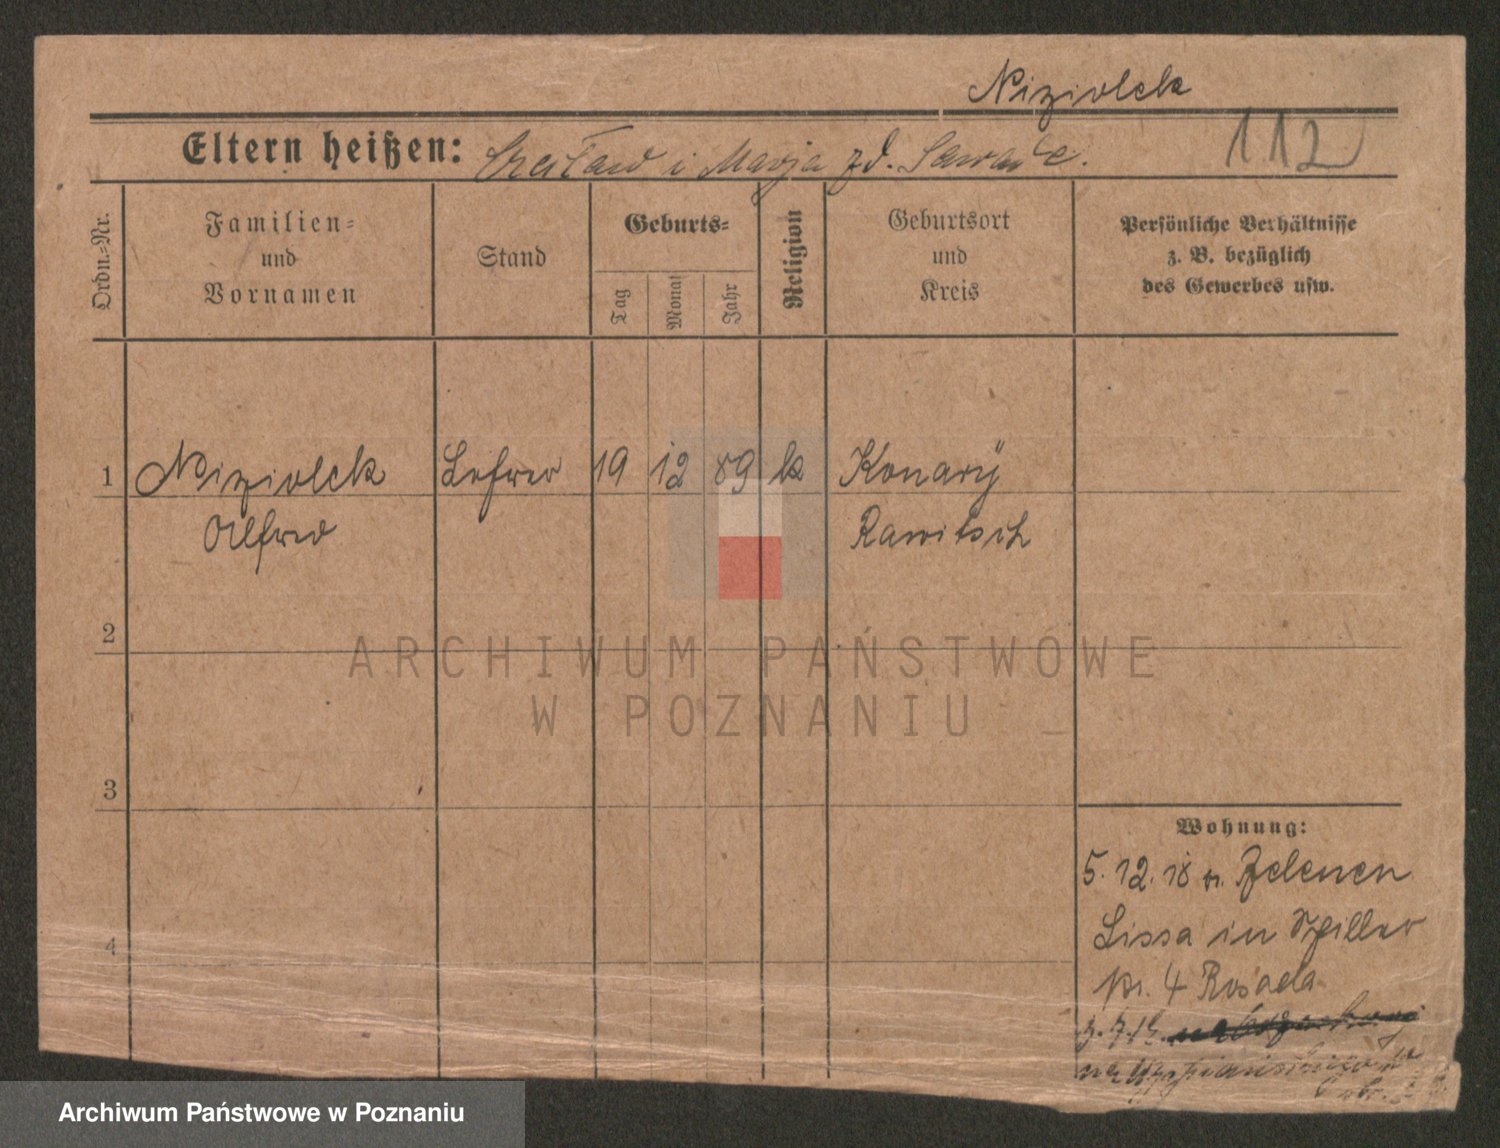 Niziolek
Eltern heißen: Czesław i Marja zd.
112
Ordn.-Nr.
Familien-
und
Vornamen
Stand
Geburts-
Tag
Monat
Jahr
Religion
Geburtsort
und
Kreis
Persönliche Verhältnisse
z. B. bezüglich
des Gewerbes usw.
1 Niziolek Lehrer 19 12 89 k Konary
Alfred Rawitsch
2
3
4
Wohnung:
5.12.18 n. Zelenen
Lissa in Schiller
pr. 4 Rosada
ARCHIWUM PAŃSTWOWE
W POZNANIU
Archiwum Państwowe w Poznaniu